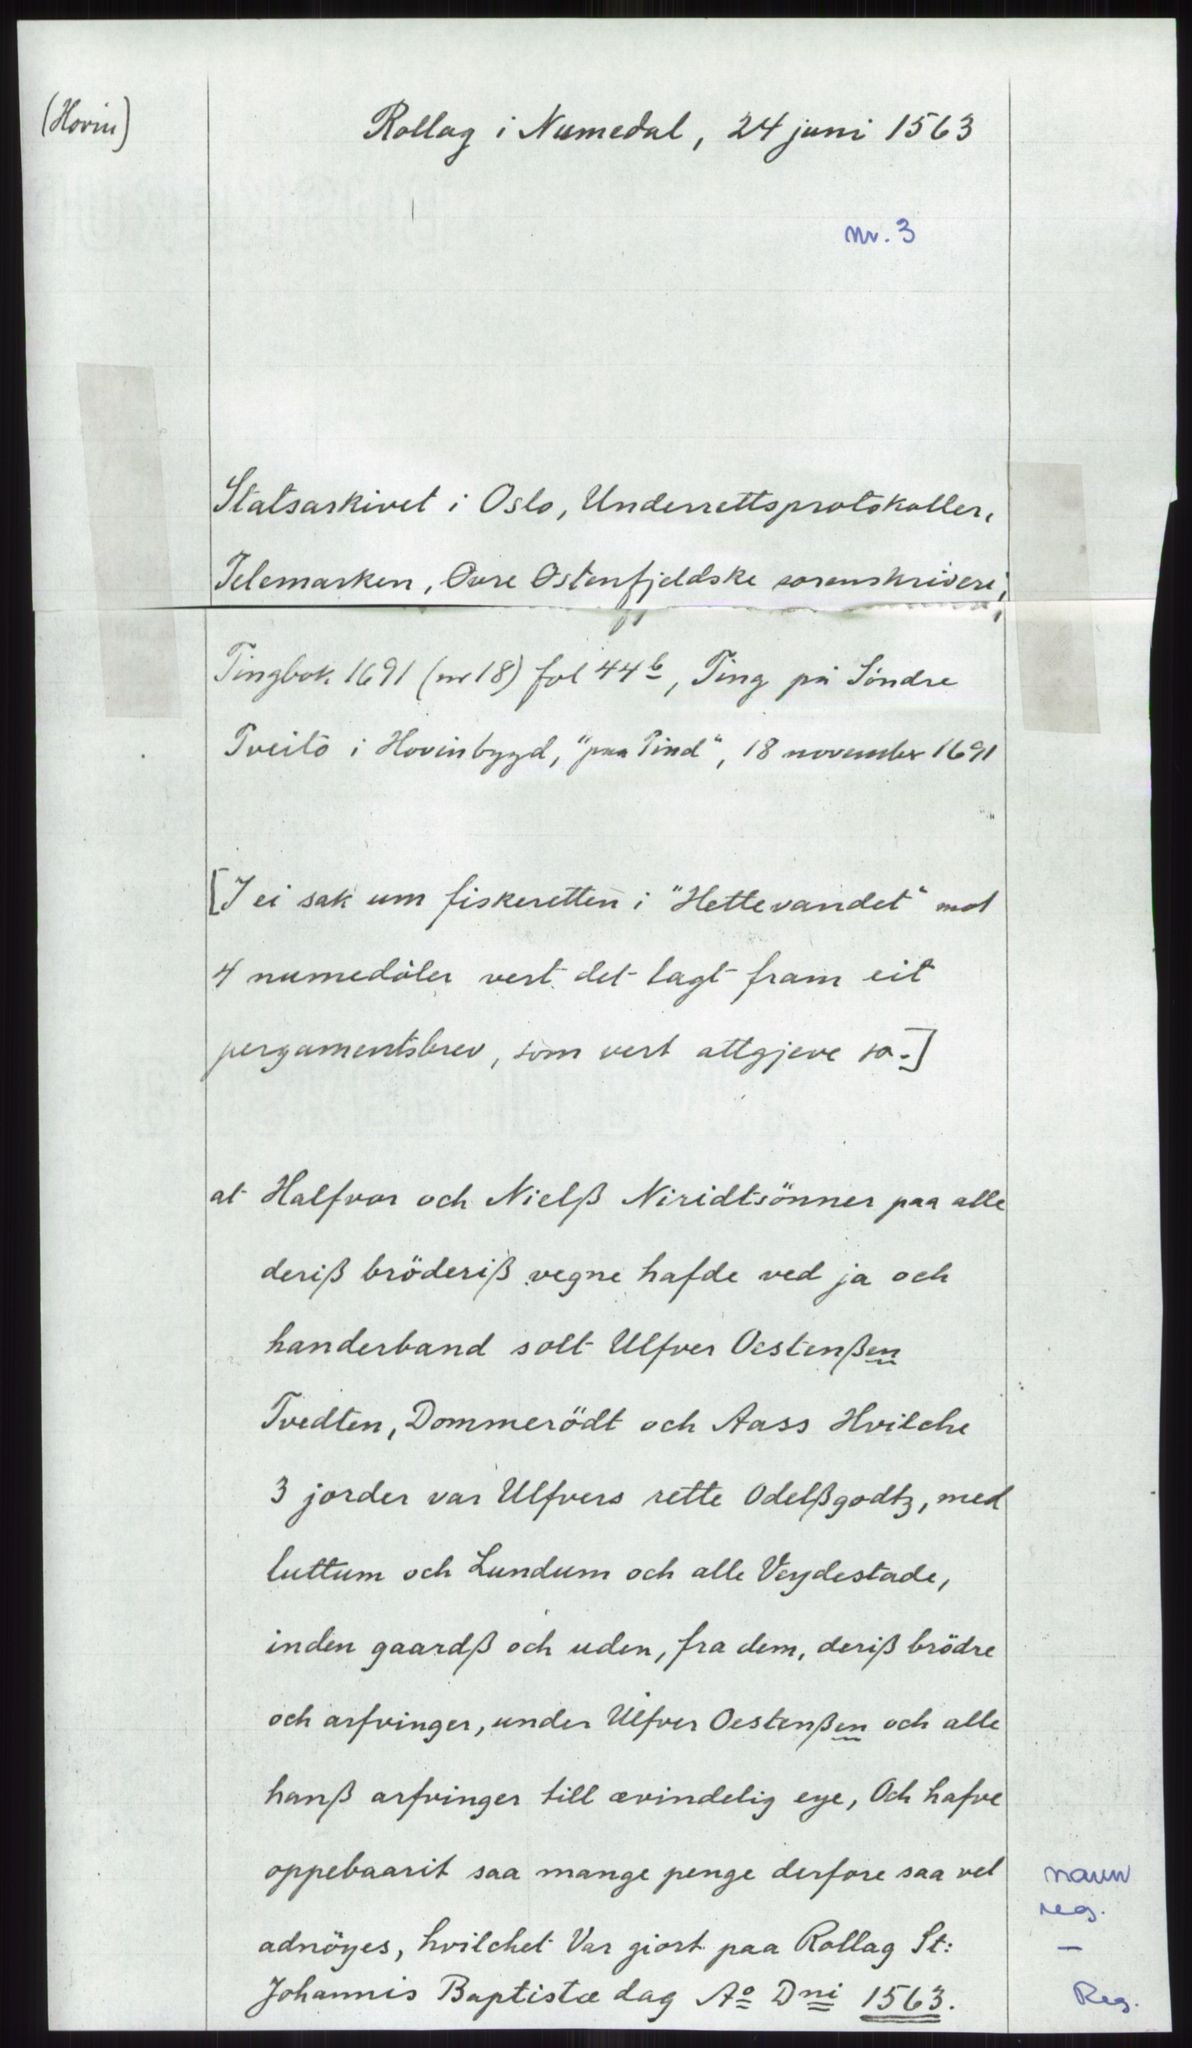 (Hovin)
Rollag i Numedal, 24 juni 1563
nr. 3
Statsarkivet i Oslo, Underrettsprotokoller,
Telemarken, Øvre Østenfjeldske sorenskriveri,
Tingbok 1691 (nr 18) fol 44 b, Ting på Söndre
Tveito i Hovinbygd, "paa Tind", 18 november 1691
[I ei sak um fiskeretten i "Hettevandet" mot
4 numedøler vert det lagt fram eit
pergamentsbrev, som vert attgjeve so.]
at Halfvor och Nielß Niridtsönner paa alle
deriß bröderiß vegne hafde ved ja och
handerband solt Ulfver Oestenßen
Tvedten, Dommerödt och Aass Hvilche
3 jorder var Ulfvers rette Odelßgodtz, med
luttum och Lundum och alle Veydestade,
inden gaardß och uden, fra dem, deriß brödre
och arfvinger, under Ulfver Oestenßen och alle
hanß arfvinger till ævindelig eye, Och hafve
oppebaarit saa mange penge derfore saa vel
adnöyes, hvilchet Var giort paa Rollag St:
Johannis Baptistæ dag Ao Dni 1563.
navn
reg.
—
Reg.